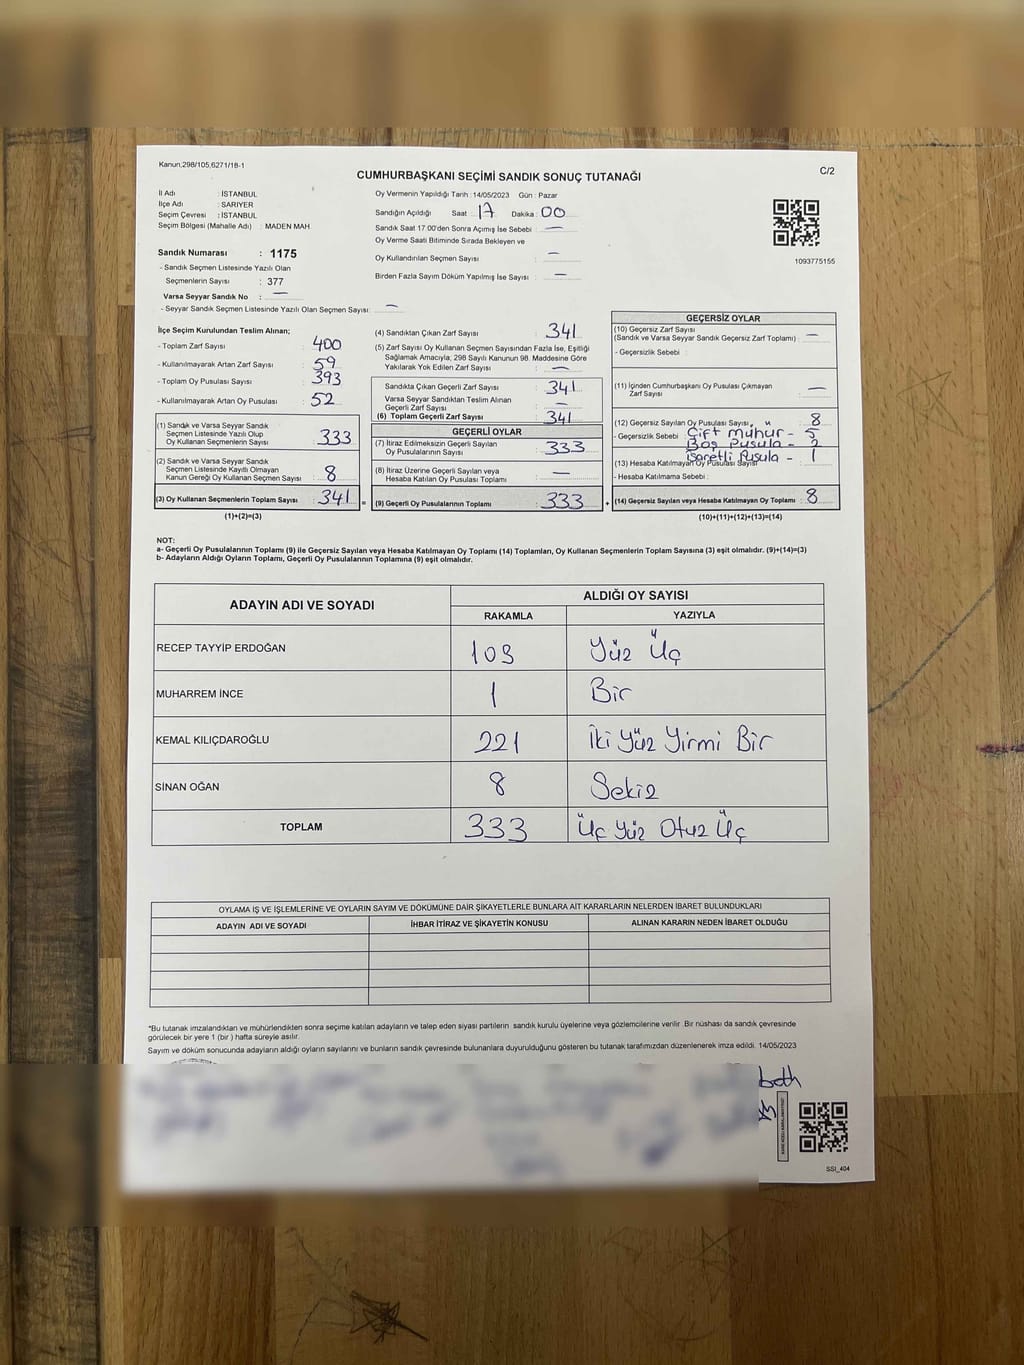 Kanun,298/105,6271/18-1
CUMHURBAŞKANI SEÇİMİ SANDIK SONUÇ TUTANAĞI
C/2
İl Adı : İSTANBUL
İlçe Adı : SARIYER
Seçim Çevresi : İSTANBUL
Seçim Bölgesi (Mahalle Adı) : MADEN MAH.
Sandık Numarası : 1175
- Sandık Seçmen Listesinde Yazılı Olan
Seçmenlerin Sayısı : 377
Varsa Seyyar Sandık No : —
- Seyyar Sandık Seçmen Listesinde Yazılı Olan Seçmen Sayısı : —
Oy Vermenin Yapıldığı Tarih : 14/05/2023 Gün : Pazar
Sandığın Açıldığı Saat : 17 Dakika : 00
Sandık Saat 17.00'den Sonra Açımış İse Sebebi : —
Oy Verme Saati Bitiminde Sırada Bekleyen ve
Oy Kullandırılan Seçmen Sayısı : —
Birden Fazla Sayım Döküm Yapılmış İse Sayısı : —
1093775155
İlçe Seçim Kurulundan Teslim Alınan;
- Toplam Zarf Sayısı : 400
- Kullanılmayarak Artan Zarf Sayısı : 59
- Toplam Oy Pusulası Sayısı : 393
- Kullanılmayarak Artan Oy Pusulası : 52
(1) Sandık ve Varsa Seyyar Sandık
Seçmen Listesinde Yazılı Olup
Oy Kullanan Seçmenlerin Sayısı : 333
(2) Sandık ve Varsa Seyyar Sandık
Seçmen Listesinde Kayıtlı Olmayan
Kanun Gereği Oy Kullanan Seçmen Sayısı : 8
(3) Oy Kullanan Seçmenlerin Toplam Sayısı : 341 =
(1)+(2)=(3)
(4) Sandıktan Çıkan Zarf Sayısı : 341
(5) Zarf Sayısı Oy Kullanan Seçmen Sayısından Fazla İse, Eşitliği
Sağlamak Amacıyla; 298 Sayılı Kanunun 98. Maddesine Göre
Yakılarak Yok Edilen Zarf Sayısı : —
Sandıkta Çıkan Geçerli Zarf Sayısı : 341
Varsa Seyyar Sandıktan Teslim Alınan
Geçerli Zarf Sayısı : —
(6) Toplam Geçerli Zarf Sayısı : 341
GEÇERLİ OYLAR
(7) İtiraz Edilmeksizin Geçerli Sayılan
Oy Pusulalarının Sayısı : 333
(8) İtiraz Üzerine Geçerli Sayılan veya
Hesaba Katılan Oy Pusulası Toplamı : —
(9) Geçerli Oy Pusulalarının Toplamı : 333 +
GEÇERSİZ OYLAR
(10) Geçersiz Zarf Sayısı
(Sandık ve Varsa Seyyar Sandık Geçersiz Zarf Toplamı) : —
- Geçersizlik Sebebi :
(11) İçinden Cumhurbaşkanı Oy Pusulası Çıkmayan
Zarf Sayısı : —
(12) Geçersiz Sayılan Oy Pusulası Sayısı : 8
- Geçersizlik Sebebi : Çift Mühür - 5
Boş Pusula - 2
İşaretli Pusula - 1
(13) Hesaba Katılmayan Oy Pusulası Sayısı
- Hesaba Katılmama Sebebi :
(14) Geçersiz Sayılan veya Hesaba Katılmayan Oy Toplamı : 8
(10)+(11)+(12)+(13)=(14)
NOT:
a- Geçerli Oy Pusulalarının Toplamı (9) ile Geçersiz Sayılan veya Hesaba Katılmayan Oy Toplamı (14) Toplamları, Oy Kullanan Seçmenlerin Toplam Sayısına (3) eşit olmalıdır. (9)+(14)=(3)
b- Adayların Aldığı Oyların Toplamı, Geçerli Oy Pusulalarının Toplamına (9) eşit olmalıdır.
ADAYIN ADI VE SOYADI
ALDIĞI OY SAYISI
RAKAMLA YAZIYLA
RECEP TAYYİP ERDOĞAN 103 Yüz Üç
MUHARREM İNCE 1 Bir
KEMAL KILIÇDAROĞLU 221 İki Yüz Yirmi Bir
SİNAN OĞAN 8 Sekiz
TOPLAM 333 Üç Yüz Otuz Üç
OYLAMA İŞ VE İŞLEMLERİNE VE OYLARIN SAYIM VE DÖKÜMÜNE DAİR ŞİKAYETLERLE BUNLARA AİT KARARLARIN NELERDEN İBARET BULUNDUKLARI
ADAYIN ADI VE SOYADI İHBAR İTİRAZ VE ŞİKAYETİN KONUSU ALINAN KARARIN NEDEN İBARET OLDUĞU
*Bu tutanak imzalandıktan ve mühürlendikten sonra seçime katılan adayların ve talep eden siyasi partilerin sandık kurulu üyelerine veya gözlemcilerine verilir. Bir nüshası da sandık çevresinde
görülecek bir yere 1 (bir) hafta süreyle asılır.
Sayım ve döküm sonucunda adayların aldığı oyların sayılarını ve bunların sandık çevresinde bulunanlara duyurulduğunu gösteren bu tutanak tarafımızdan düzenlenerek imza edildi. 14/05/2023
SSI_404